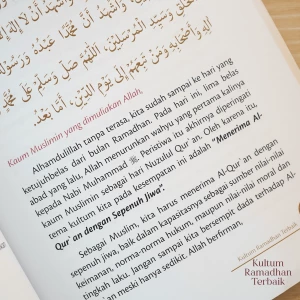 خلق وسيد المرسلين، اللهم صل وسلم على محمد
آله وأصحابه ومن تبعهم إلى يوم الدين، أما بعد.
Kaum Muslimin yang dimuliakan Allah,
Alhamdulillah tanpa terasa, kita sudah sampai ke hari yang
ketujuhbelas dari bulan Ramadhan. Pada hari ini, lima belas
abad yang lalu, Allah menurunkan wahyu yang pertama kalinya
kepada Nabi Muhammad ﷺ. Peristiwa itu akhirnya diperingati
kaum Muslimin sebagai hari Nuzulul Qur'an. Oleh karena itu,
tema kultum kita pada kesempatan ini adalah "Menerima Al-
Qur'an dengan Sepenuh Jiwa".
Sebagai Muslim, kita harus menerima Al-Qur'an dengan
sepenuh jiwa, baik dalam kapasitasnya sebagai sumber nilai-nilai
keimanan, norma-norma hukum, maupun nilai-nilai moral dan
tingkah laku. Jangan sampai kita bersempit dada terhadap Al-
an meski hanya sedikit. Allah berfirman,
Kultum Ramadhan Terbaik
Kultum
Ramadhan
Terbaik